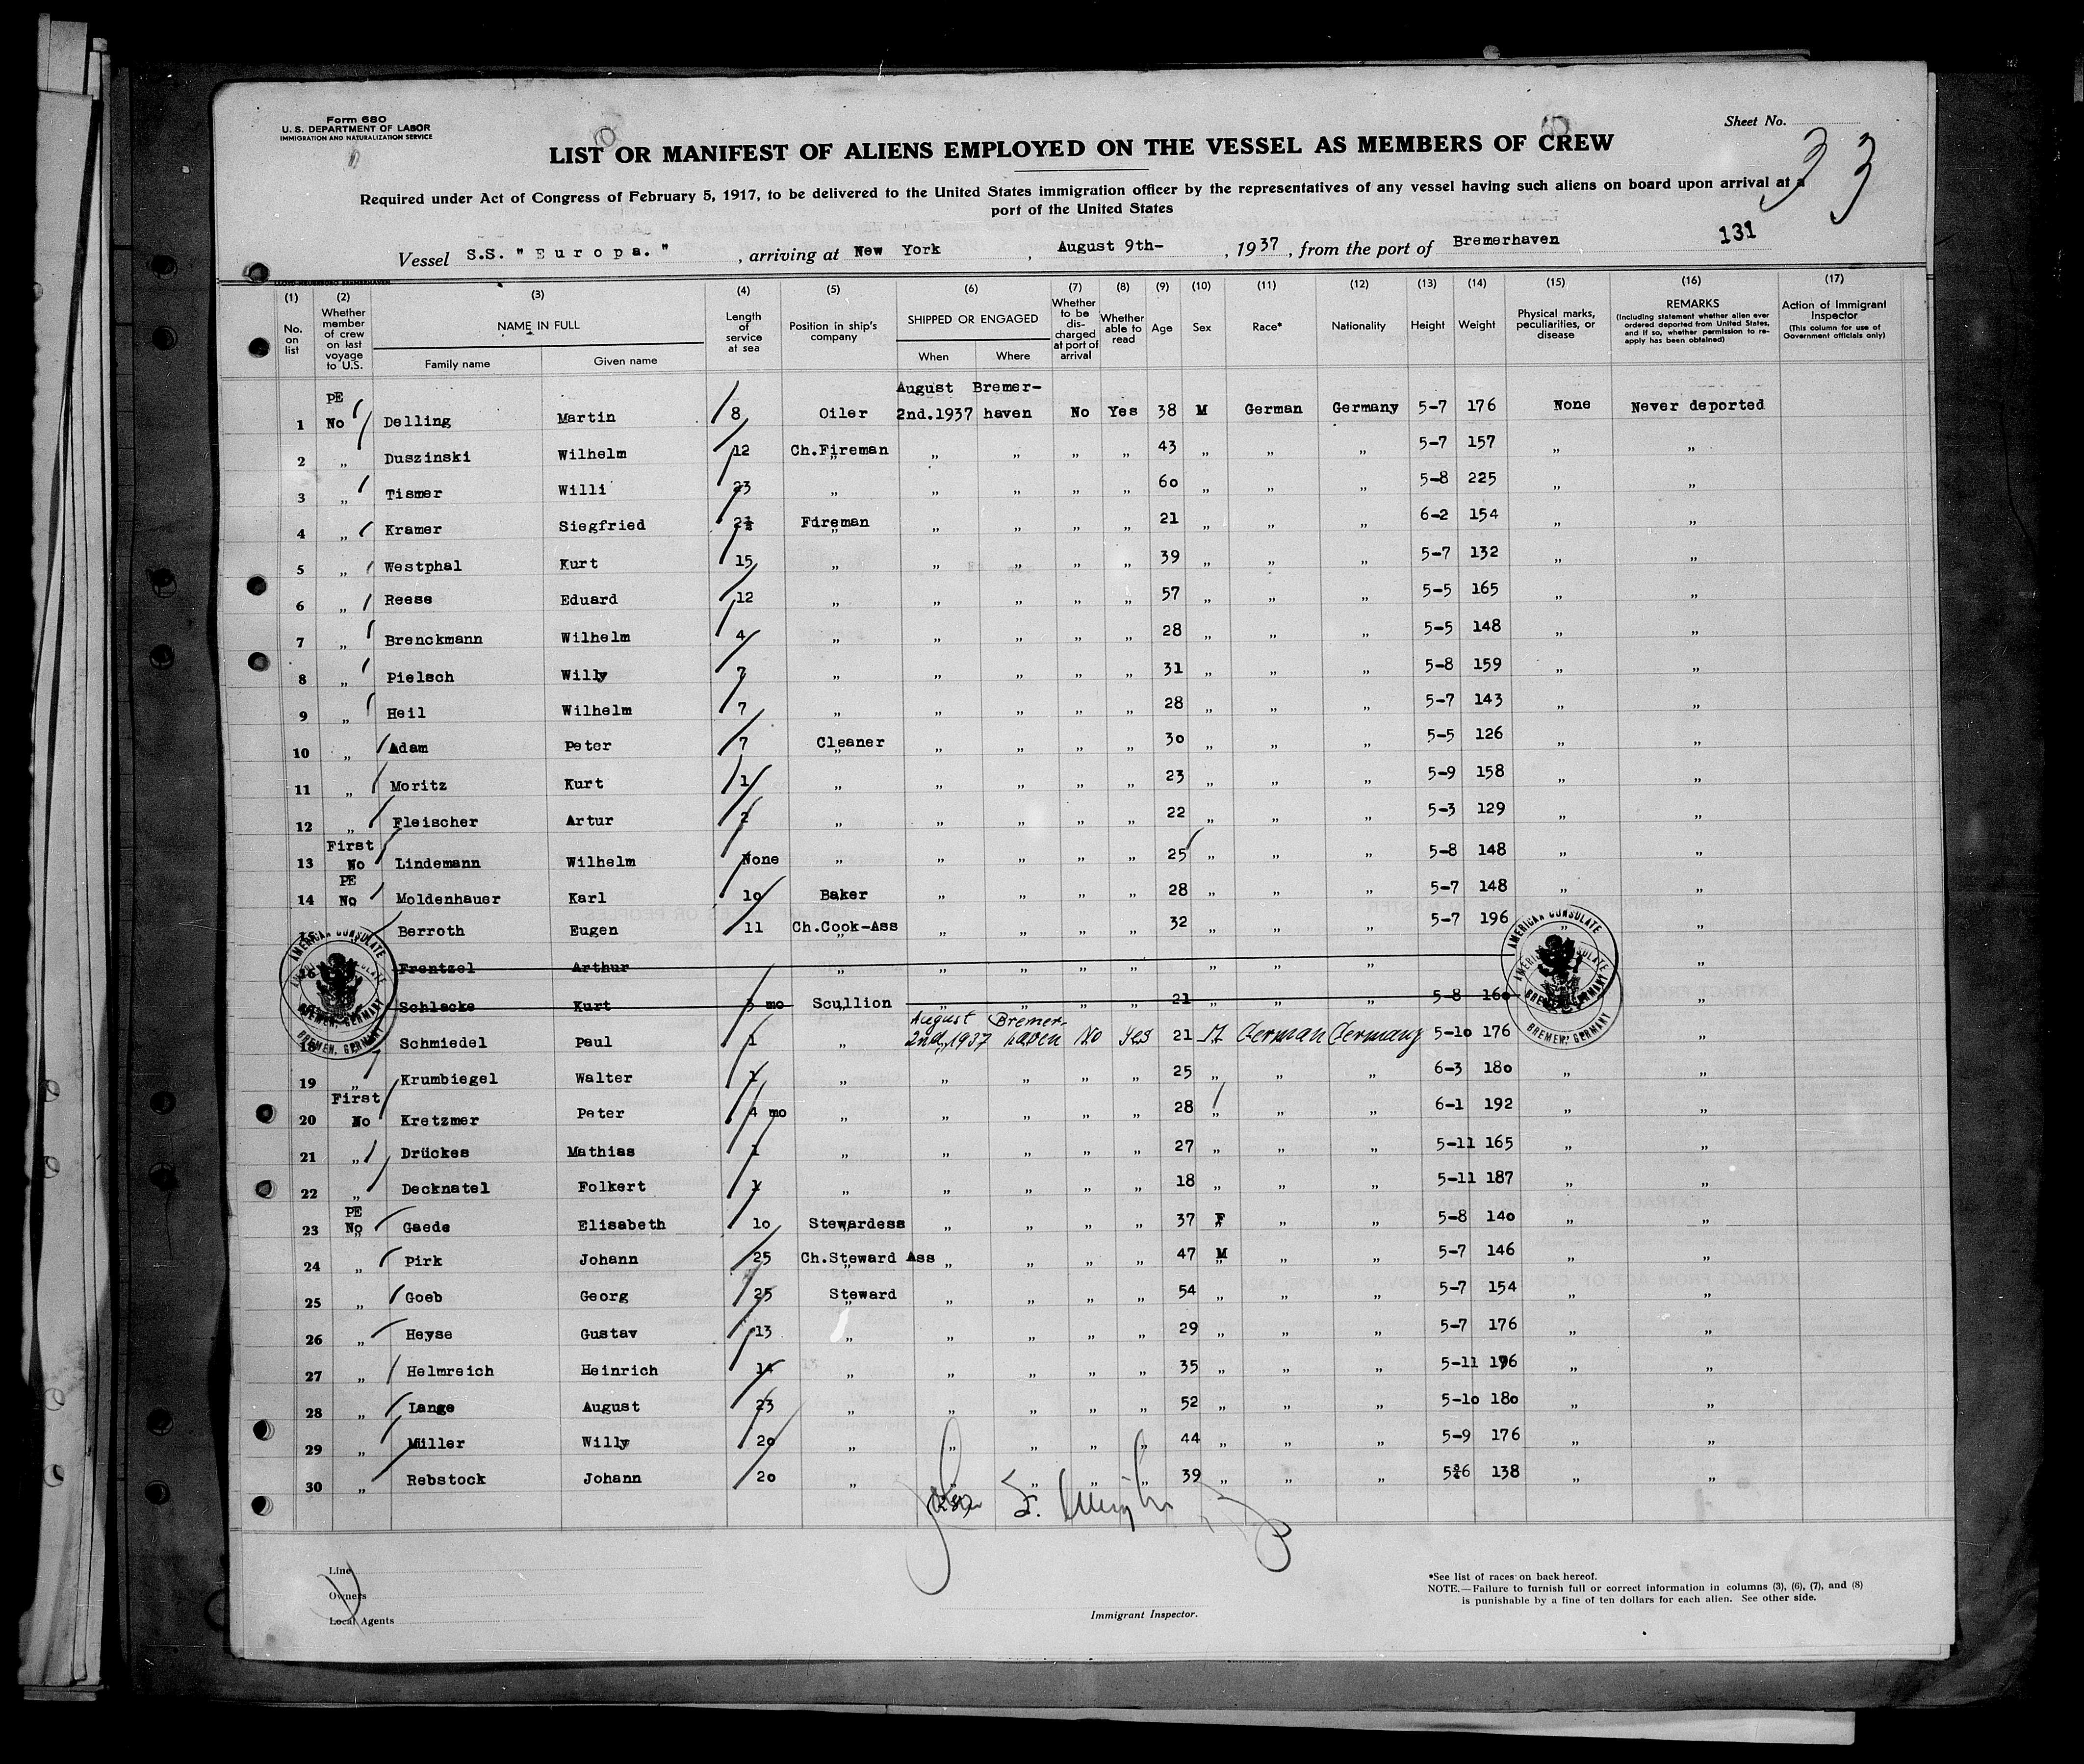 Form 680
U. S. DEPARTMENT OF LABOR
IMMIGRATION AND NATURALIZATION SERVICE
Sheet No. 33
LIST OR MANIFEST OF ALIENS EMPLOYED ON THE VESSEL AS MEMBERS OF CREW
Required under Act of Congress of February 5, 1917, to be delivered to the United States immigration officer by the representatives of any vessel having such aliens on board upon arrival at a
port of the United States
131
Vessel S.S. "Europa." , arriving at New York , August 9th- , 1937 , from the port of Bremerhaven
(1) No. on list (2) Whether member of crew on last voyage to U.S. (3) NAME IN FULL Family name Given name (4) Length of service at sea (5) Position in ship's company (6) SHIPPED OR ENGAGED When Where (7) Whether to be discharged at port of arrival (8) Whether able to read (9) Age (10) Sex (11) Race* (12) Nationality (13) Height (14) Weight (15) Physical marks, peculiarities, or disease (16) REMARKS (Including statement whether alien ever ordered deported from United States, and if so, whether permission to re-apply has been obtained) (17) Action of Immigrant Inspector (This column for use of Government officials only)
PE August Bremer-
1 No Delling Martin 8 Oiler 2nd.1937 haven No Yes 38 M German Germany 5-7 176 None Never deported
2 „ Duszinski Wilhelm 12 Ch.Fireman „ „ „ „ 43 „ „ „ 5-7 157 „ „
3 „ Tismer Willi 23 „ „ „ „ „ 60 „ „ „ 5-8 225 „ „
4 „ Kramer Siegfried 2½ Fireman „ „ „ „ 21 „ „ „ 6-2 154 „ „
5 „ Westphal Kurt 15 „ „ „ „ „ 39 „ „ „ 5-7 132 „ „
6 „ Reese Eduard 12 „ „ „ „ „ 57 „ „ „ 5-5 165 „ „
7 „ Brenckmann Wilhelm 4 „ „ „ „ „ 28 „ „ „ 5-5 148 „ „
8 „ Pielsch Willy 7 „ „ „ „ „ 31 „ „ „ 5-8 159 „ „
9 „ Heil Wilhelm 7 „ „ „ „ „ 28 „ „ „ 5-7 143 „ „
10 „ Adam Peter 7 Cleaner „ „ „ „ 30 „ „ „ 5-5 126 „ „
11 „ Moritz Kurt 1 „ „ „ „ „ 23 „ „ „ 5-9 158 „ „
12 „ Fleischer Artur 2 „ „ „ „ „ 22 „ „ „ 5-3 129 „ „
First
13 No Lindemann Wilhelm None „ „ „ „ „ 25 „ „ „ 5-8 148 „ „
PE
14 No Moldenhauer Karl 10 Baker „ „ „ „ 28 „ „ „ 5-7 148 „ „
15 „ Berroth Eugen 11 Ch.Cook-Ass „ „ „ „ 32 „ „ „ 5-7 196 „ „
16 Frentzel Arthur „ „ „ „ „ „ „ „ „
Schlacke Kurt 3 mo Scullion „ „ „ „ 21 „ „ „ 5-8 160 „
August Bremer-
18 Schmiedel Paul 1 „ 2nd,1937 haven No Yes 21 M German Germany 5-10 176 „ „
19 „ Krumbiegel Walter 1 „ „ „ „ „ 25 „ „ „ 6-3 180 „ „
First
20 No Kretzmer Peter 4 mo „ „ „ „ „ 28 „ „ „ 6-1 192 „ „
21 „ Drückes Mathias 1 „ „ „ „ „ 27 „ „ „ 5-11 165 „ „
22 „ Decknatel Folkert 1 „ „ „ „ „ 18 „ „ „ 5-11 187 „ „
PE
23 No Gaede Elisabeth 10 Stewardess „ „ „ „ 37 F „ „ 5-8 140 „ „
24 „ Pirk Johann 25 Ch.Steward Ass „ „ „ „ 47 M „ „ 5-7 146 „ „
25 „ Goeb Georg 25 Steward „ „ „ „ 54 „ „ „ 5-7 154 „ „
26 „ Heyse Gustav 13 „ „ „ „ „ 29 „ „ „ 5-7 176 „ „
27 „ Helmreich Heinrich 14 „ „ „ „ „ 35 „ „ „ 5-11 196 „ „
28 „ Lange August 23 „ „ „ „ „ 52 „ „ „ 5-10 180 „ „
29 „ Miller Willy 20 „ „ „ „ „ 44 „ „ „ 5-9 176 „ „
30 „ Rebstock Johann 20 „ „ „ „ „ 39 „ „ „ 5-6 138 „ „
AMERICAN CONSULATE
BREMEN, GERMANY
AMERICAN CONSULATE
BREMEN, GERMANY
Line
Owners
Local Agents
Immigrant Inspector.
*See list of races on back hereof.
NOTE.—Failure to furnish full or correct information in columns (3), (6), (7), and (8)
is punishable by a fine of ten dollars for each alien. See other side.